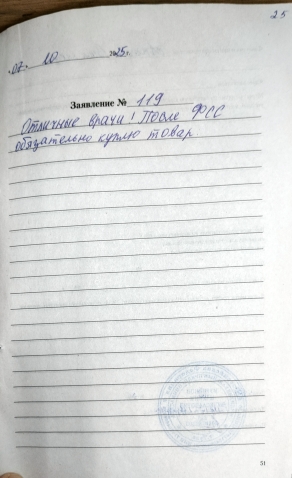 25
07. 10 2025г.
Заявление № 119
Отличные врачи! После ФСС
обязательно куплю товар
31